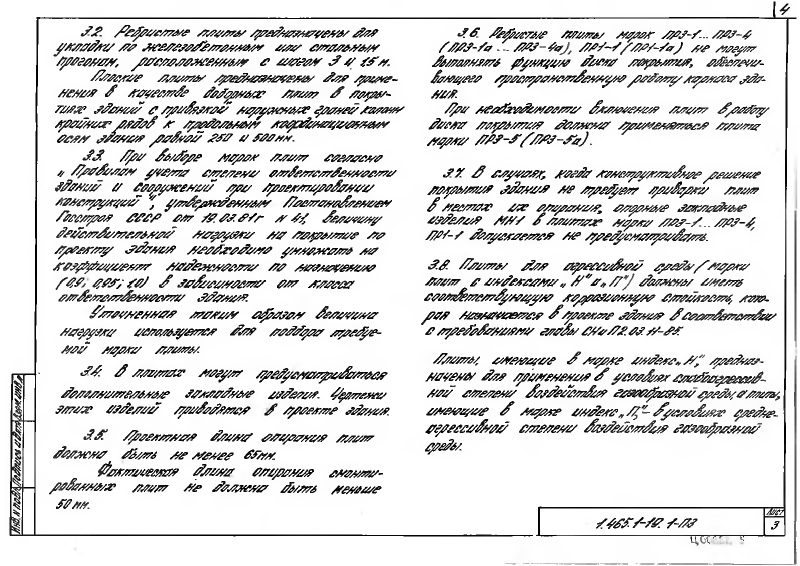 4
3.2. Ребристые плиты предназначены для
укладки по железобетонным или стальным
прогонам, расположенным с шагом 3 и 1.5 м.
Плоские плиты предназначены для приме-
нения в качестве доборных плит в покры-
тиях зданий с привязкой наружных граней колонн
крайних рядов к продольным координационным
осям здания равной 250 и 500мм.
3.3. При выборе марок плит согласно
„Правилам учета степени ответственности
зданий и сооружений при проектировании
конструкций", утвержденным Постановлением
Госстроя СССР от 19.03.81г N 41, величину
действительной нагрузки на покрытие по
проекту здания необходимо умножать на
коэффициент надежности по назначению
(0,9; 0,95; 1,0) в зависимости от класса
ответственности здания.
Уточненная таким образом величина
нагрузки используется для подбора требуе-
мой марки плиты.
3.4. В плитах могут предусматриваться
дополнительные закладные изделия. Чертежи
этих изделий приводятся в проекте здания.
3.5. Проектная длина опирания плит
должна быть не менее 65мм.
Фактическая длина опирания смонти-
рованных плит не должна быть меньше
50 мм.
3.6. Ребристые плиты марок ПР3-1... ПР3-4
(ПР3-1а... ПР3-4а), ПР1-1 (ПР1-1а) не могут
выполнять функцию диска покрытия, обеспечи-
вающего пространственную работу каркаса зда-
ния.
При необходимости включения плит в работу
диска покрытия должна применяться плита
марки ПР3-5 (ПР3-5а).
3.7. В случаях, когда конструктивное решение
покрытия здания не требует приварки плит
в местах их опирания, опорные закладные
изделия МН1 в плитах марки ПР3-1... ПР3-4,
ПР1-1 допускается не предусматривать.
3.8. Плиты для агрессивной среды (марки
плит с индексами „Н" и „П") должны иметь
соответствующую коррозионную стойкость, кото-
рая назначается в проекте здания в соответствии
с требованиями главы СНиП 2.03.11-85.
Плиты, имеющие в марке индекс „Н", предназ-
начены для применения в условиях слабоагрессив-
ной степени воздействия газообразной среды, а плиты,
имеющие в марке индекс „П",- в условиях средне-
агрессивной степени воздействия газообразной
среды.
Инв. N подл. Подпись и дата Взам. инв. N
1.465.1-10. 1-ПЗ
Лист
3